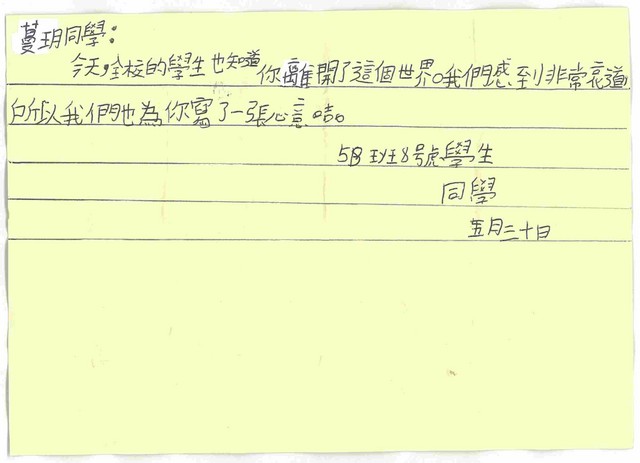 蔓玥同學：
今天，全校的學生也知道你離開了這個世界。我們感到非常哀道
所以我們也為你寫了一張心意咭。
5B班8號學生
同學
五月三十日